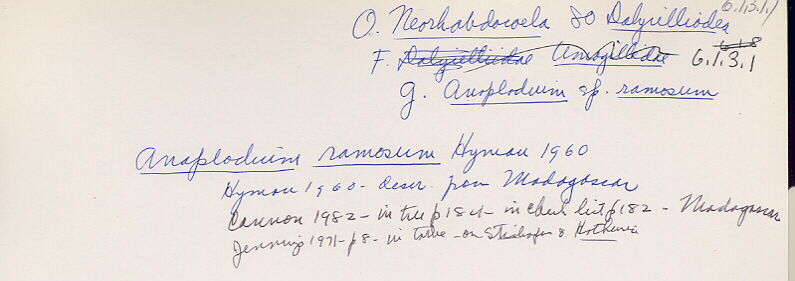 6.1.3.1
O. Neorhabdocoela SO Dalyellioda
F. Dalyelliidae Umagillidae 6.1.3.1
g. Anoplodium sp. ramosum
Anoplodium ramosum Hyman 1960
Hyman 1960 - descr. from Madagascar
Cannon 1982 - in tree p184 - in check list p182 - Madagascar
Jennings 1971 - p8 - in table - on Stichopus &